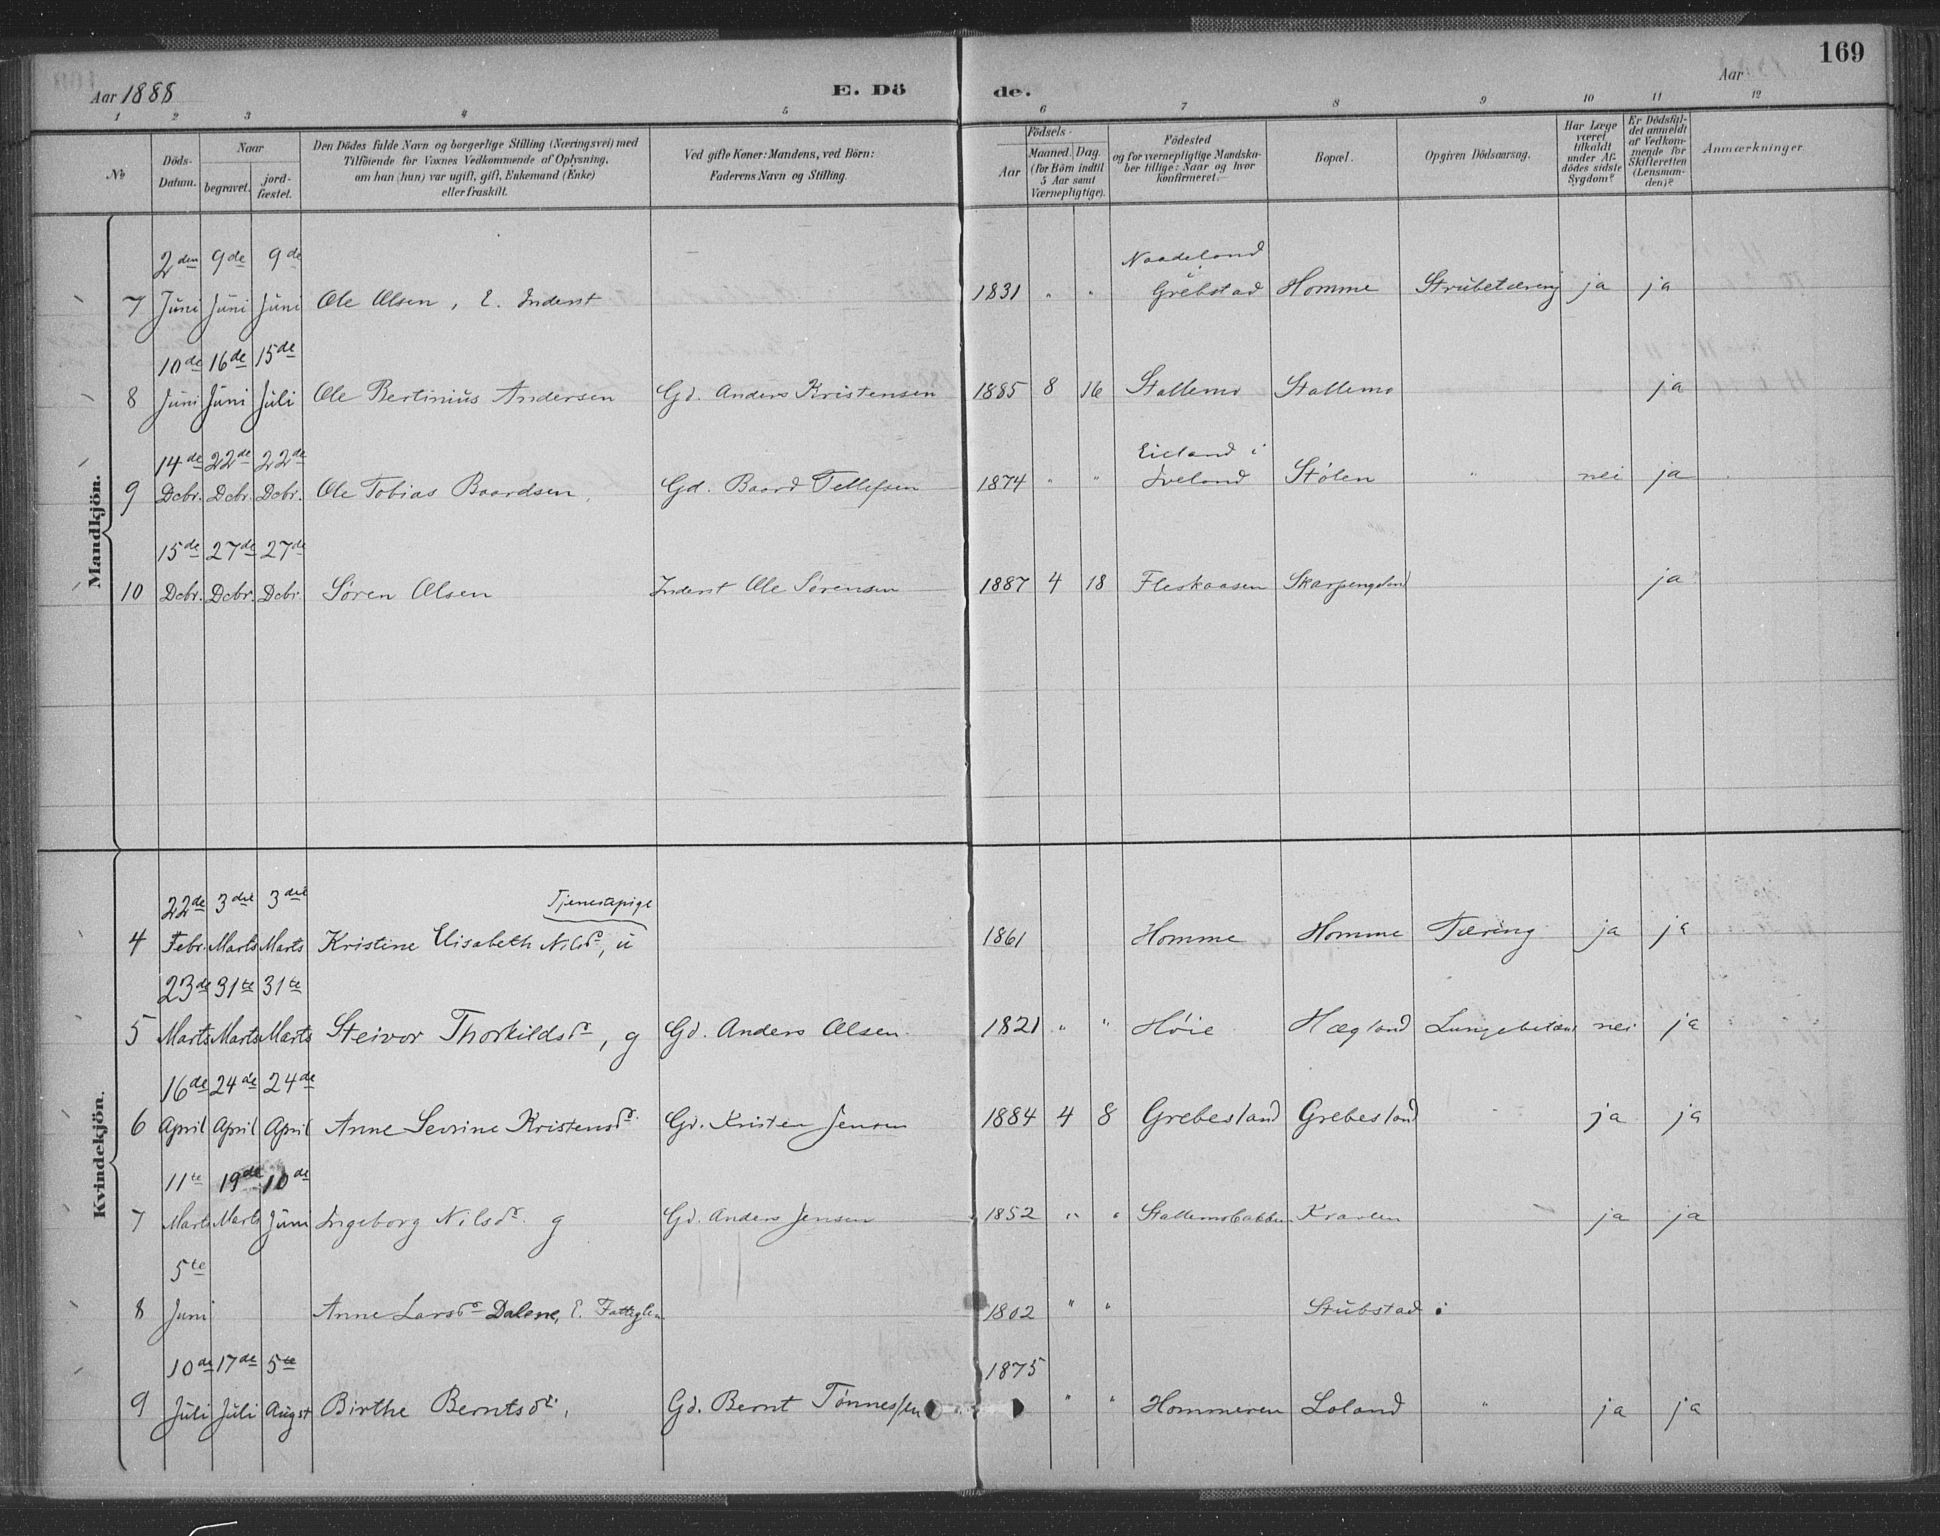 169
Aar 1888
E. Dö
de.
Aar
1 2 3 4 5 6 7 8 9 10 11 12
№
Döds-Datum.
Naar
begravet.
jordfæstet.
Den Dödes fulde Navn og borgerlige Stilling (Næringsvei) med
Tilföiende for Voxnes Vedkommende af Oplysning,
om han (hun) var ugift, gift, Enkemand (Enke)
eller fraskilt.
Ved gifte Koner: Mandens, ved Börn:
Faderens Navn og Stilling.
Födsels-
Aar
Maaned. Dag.
(for Börn indtil
5 Aar samt
Værnepligtige).
Födested
og for værnepligtige Mandska-
ber tillige: Naar og hvor
konfirmeret.
Bopæl.
Opgiven Dödsaarsag.
Har Læge
været
tilkaldt
under Af-
dödes sidste
Sygdom?
Er Dödsfal-
det anmeldt
af Vedkom-
mende for
Skifteretten
(Lensman-
den)?
Anmærkninger.
Mandkjön.
2den 9de 9de Naadeland i
7 Juni Juni Juni Ole Olsen, E. Inderst 1831 " " Grebstad Homme Strubetæring ja ja
10de 16de 15de
8 Juni Juni Juli Ole Bertinius Andersen Gd. Anders Kristensen 1885 8 16 Stallemo Stallemo ja
14de 22de 22de Eieland i
9 Dcbr. Dcbr. Dcbr. Ole Tobias Baardsen, Gd. Baard Tellefsen 1874 " " Iveland Stølen " nei ja
15de 27de 27de
10 Dcbr. Dcbr. Dcbr. Søren Olsen Inderst Ole Sørensen 1887 4 18 Fleskaasen Skarpengland ja
Kvindekjön.
22de 3die 3die Tjenestepige
4 Febr. Marts Marts Kristine Elisabeth Nilsdr, u 1861 Homme Homme Tæring ja ja
23de 31te 31te
5 Marts Marts Marts Steivor Thorkildsdr, g Gd. Anders Olsen 1821 " " Høie Hægland nei ja
16de 24de 24de
6 April April April Anne Sevrine Kristensdr Gd. Kristen Jensen 1884 4 8 Grebesland Grebesland ja ja
11te 19de 10de
7 Marts Marts Juni Ingeborg Nilsdr. g Gd. Anders Jensen 1852 " " ja ja
5te
8 Juni Anne Larsdr Dalene, E. 1802 " " Stubstad
10de 17de 5te 1875
9 Juli Juli Augst Birthe Berntsdr, Gd. Bernt Tønnessen " " Hommeren Loland " ja ja